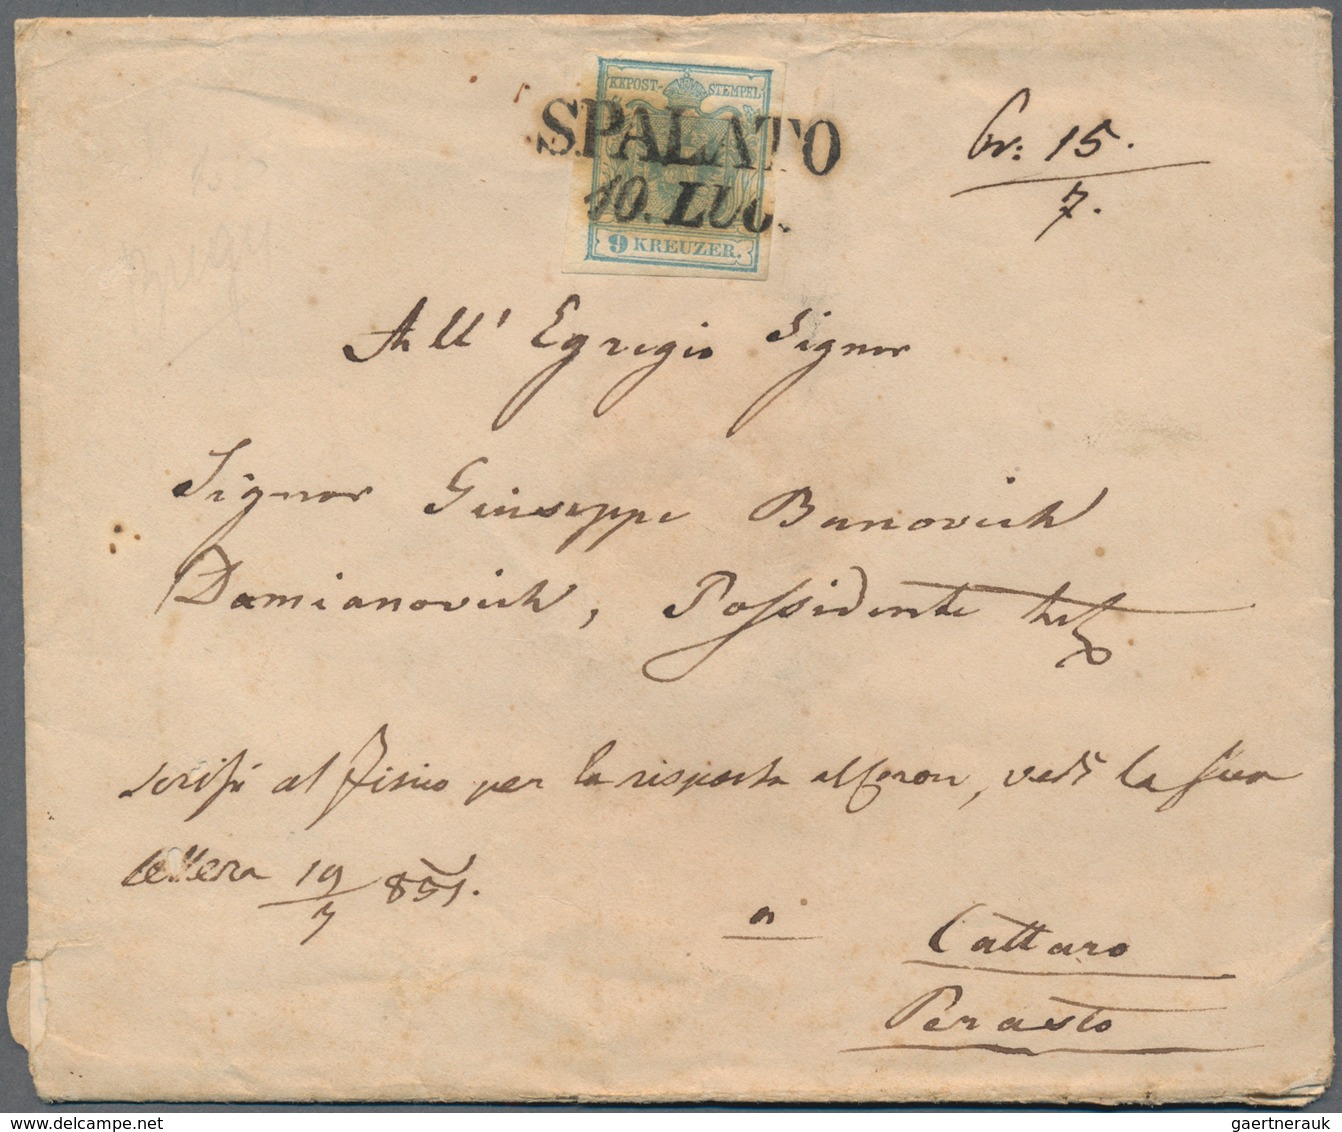 KKPOST-STEMPEL
SPALATO
10. LUG.
9 KREUZER.
Gr: 15.
7.
All' Egregio Signor
Signor Giuseppe Banovich
Damianovich, Possidente
scrissi al Fisico per la risposta, vedi la sua
lettera 19/7 851.
a Cattaro
Perasto
gaertnerauk